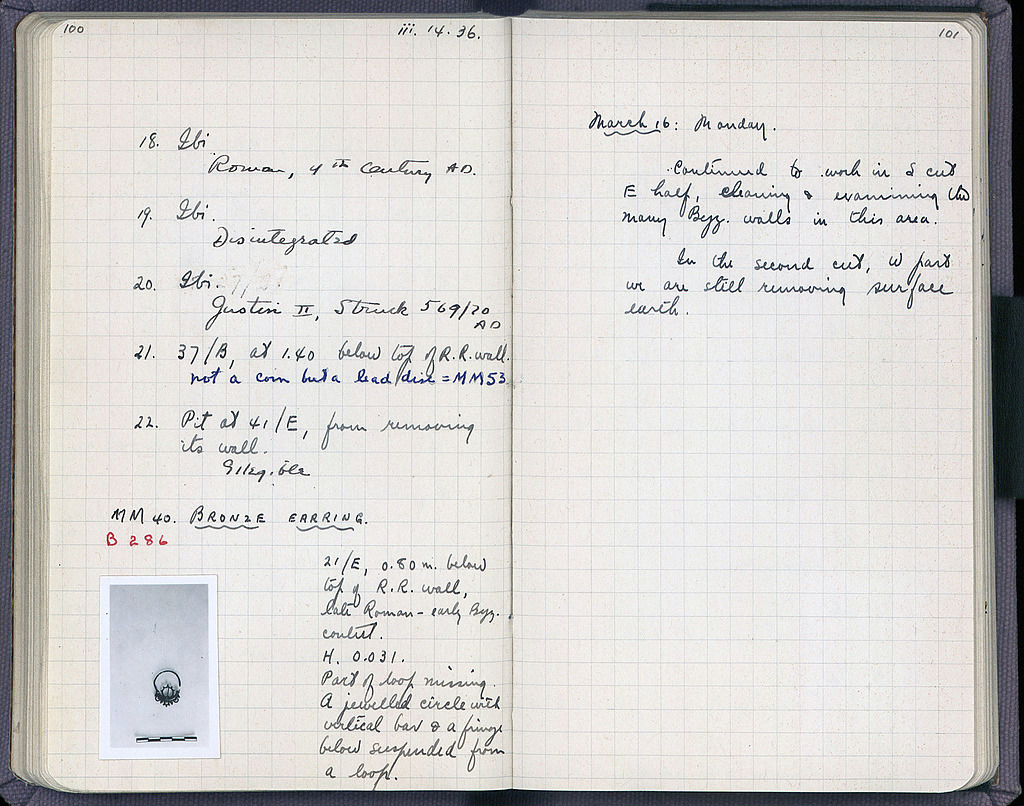 100
iii. 14. 36.
18. Ibi.
Roman, 4th Century AD.
19. Ibi.
Disintegrated
20. Ibi.
Justin II, Struck 569/70
AD
21. 37/B, at 1.40 below top of R.R. wall.
not a coin but a lead disc = MM53
22. Pit at 41/E, from removing
its wall.
Illegible
MM 40. BRONZE EARRING.
B 286
21/E, 0.80 m. below
top of R.R. wall,
late Roman - early Byz.
context.
H. 0.031.
Part of loop missing.
A jewelled circle with
vertical bar & a fringe
below suspended from
a loop.
101
March 16: Monday.
Continued to work in S cut
E half, cleaning & examining the
many Byz. walls in this area.
In the second cut, W part
we are still removing surface
earth.